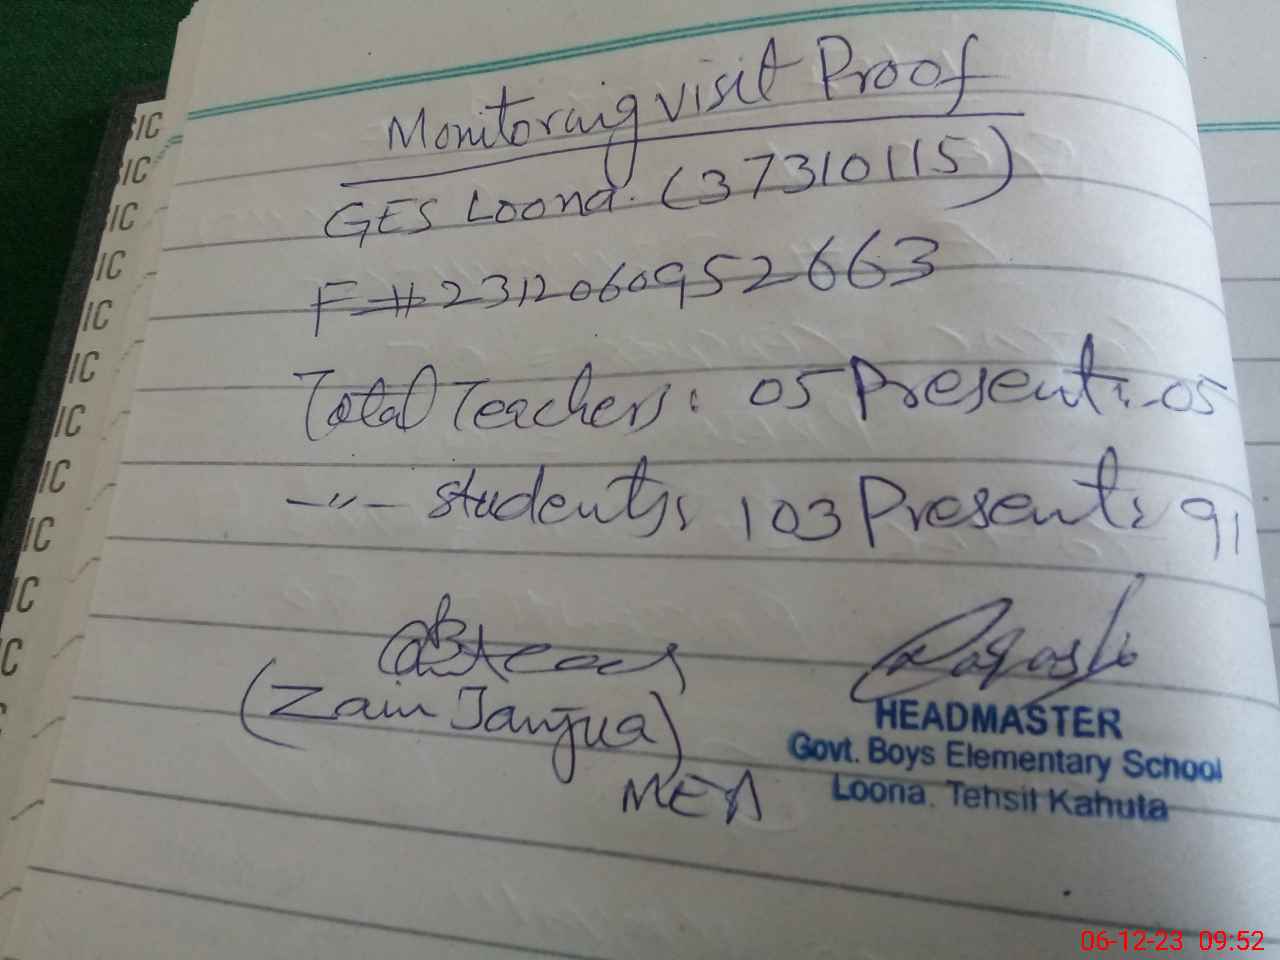 Monitoraig visit Proof
GES Loona. (37310115)
F# 2312060952663
Total Teachers: 05 Present: 05
-〃- students: 103 Present: 91
(Zain Janjua)
MEA
HEADMASTER
Govt. Boys Elementary School
Loona. Tehsil Kahuta
IC
IC
IC
IC
IC
IC
IC
IC
IC
IC
C
06-12-23 09:52